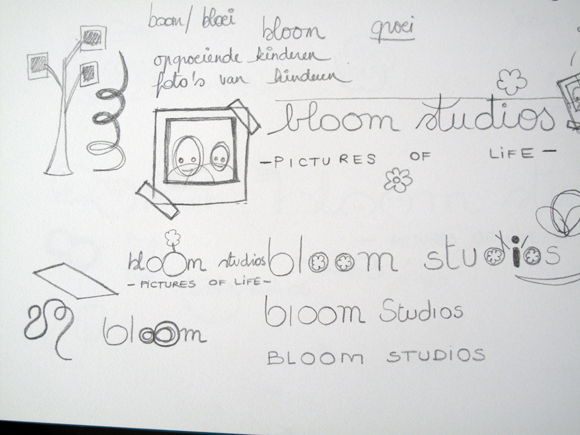 boom/ bloei bloom groei
opgroeiende kinderen
foto's van kinderen
bloom studios
-PICTURES OF LiFE-
bloom studios
- PICTURES OF LIFE-
bloom studios
bloom
bloom Studios
BLOOM STUDIOS